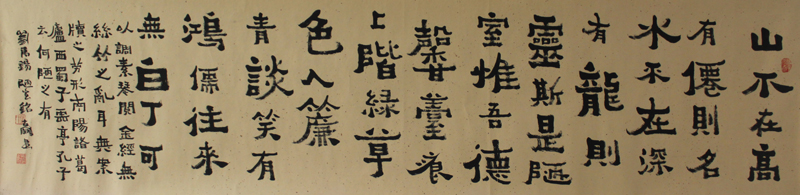 山不在高
有僊則名
水不在深
有龍則
靈斯是陋
室惟吾德
馨薹痕
上階緑草
色入簾
青談笑有
鴻儒往來
無白丁可
以調素琴閱金經無
絲竹之亂耳無案
牘之勞形南陽諸葛
廬西蜀子雲亭孔子
云何陋之有
劉禹錫陋室銘